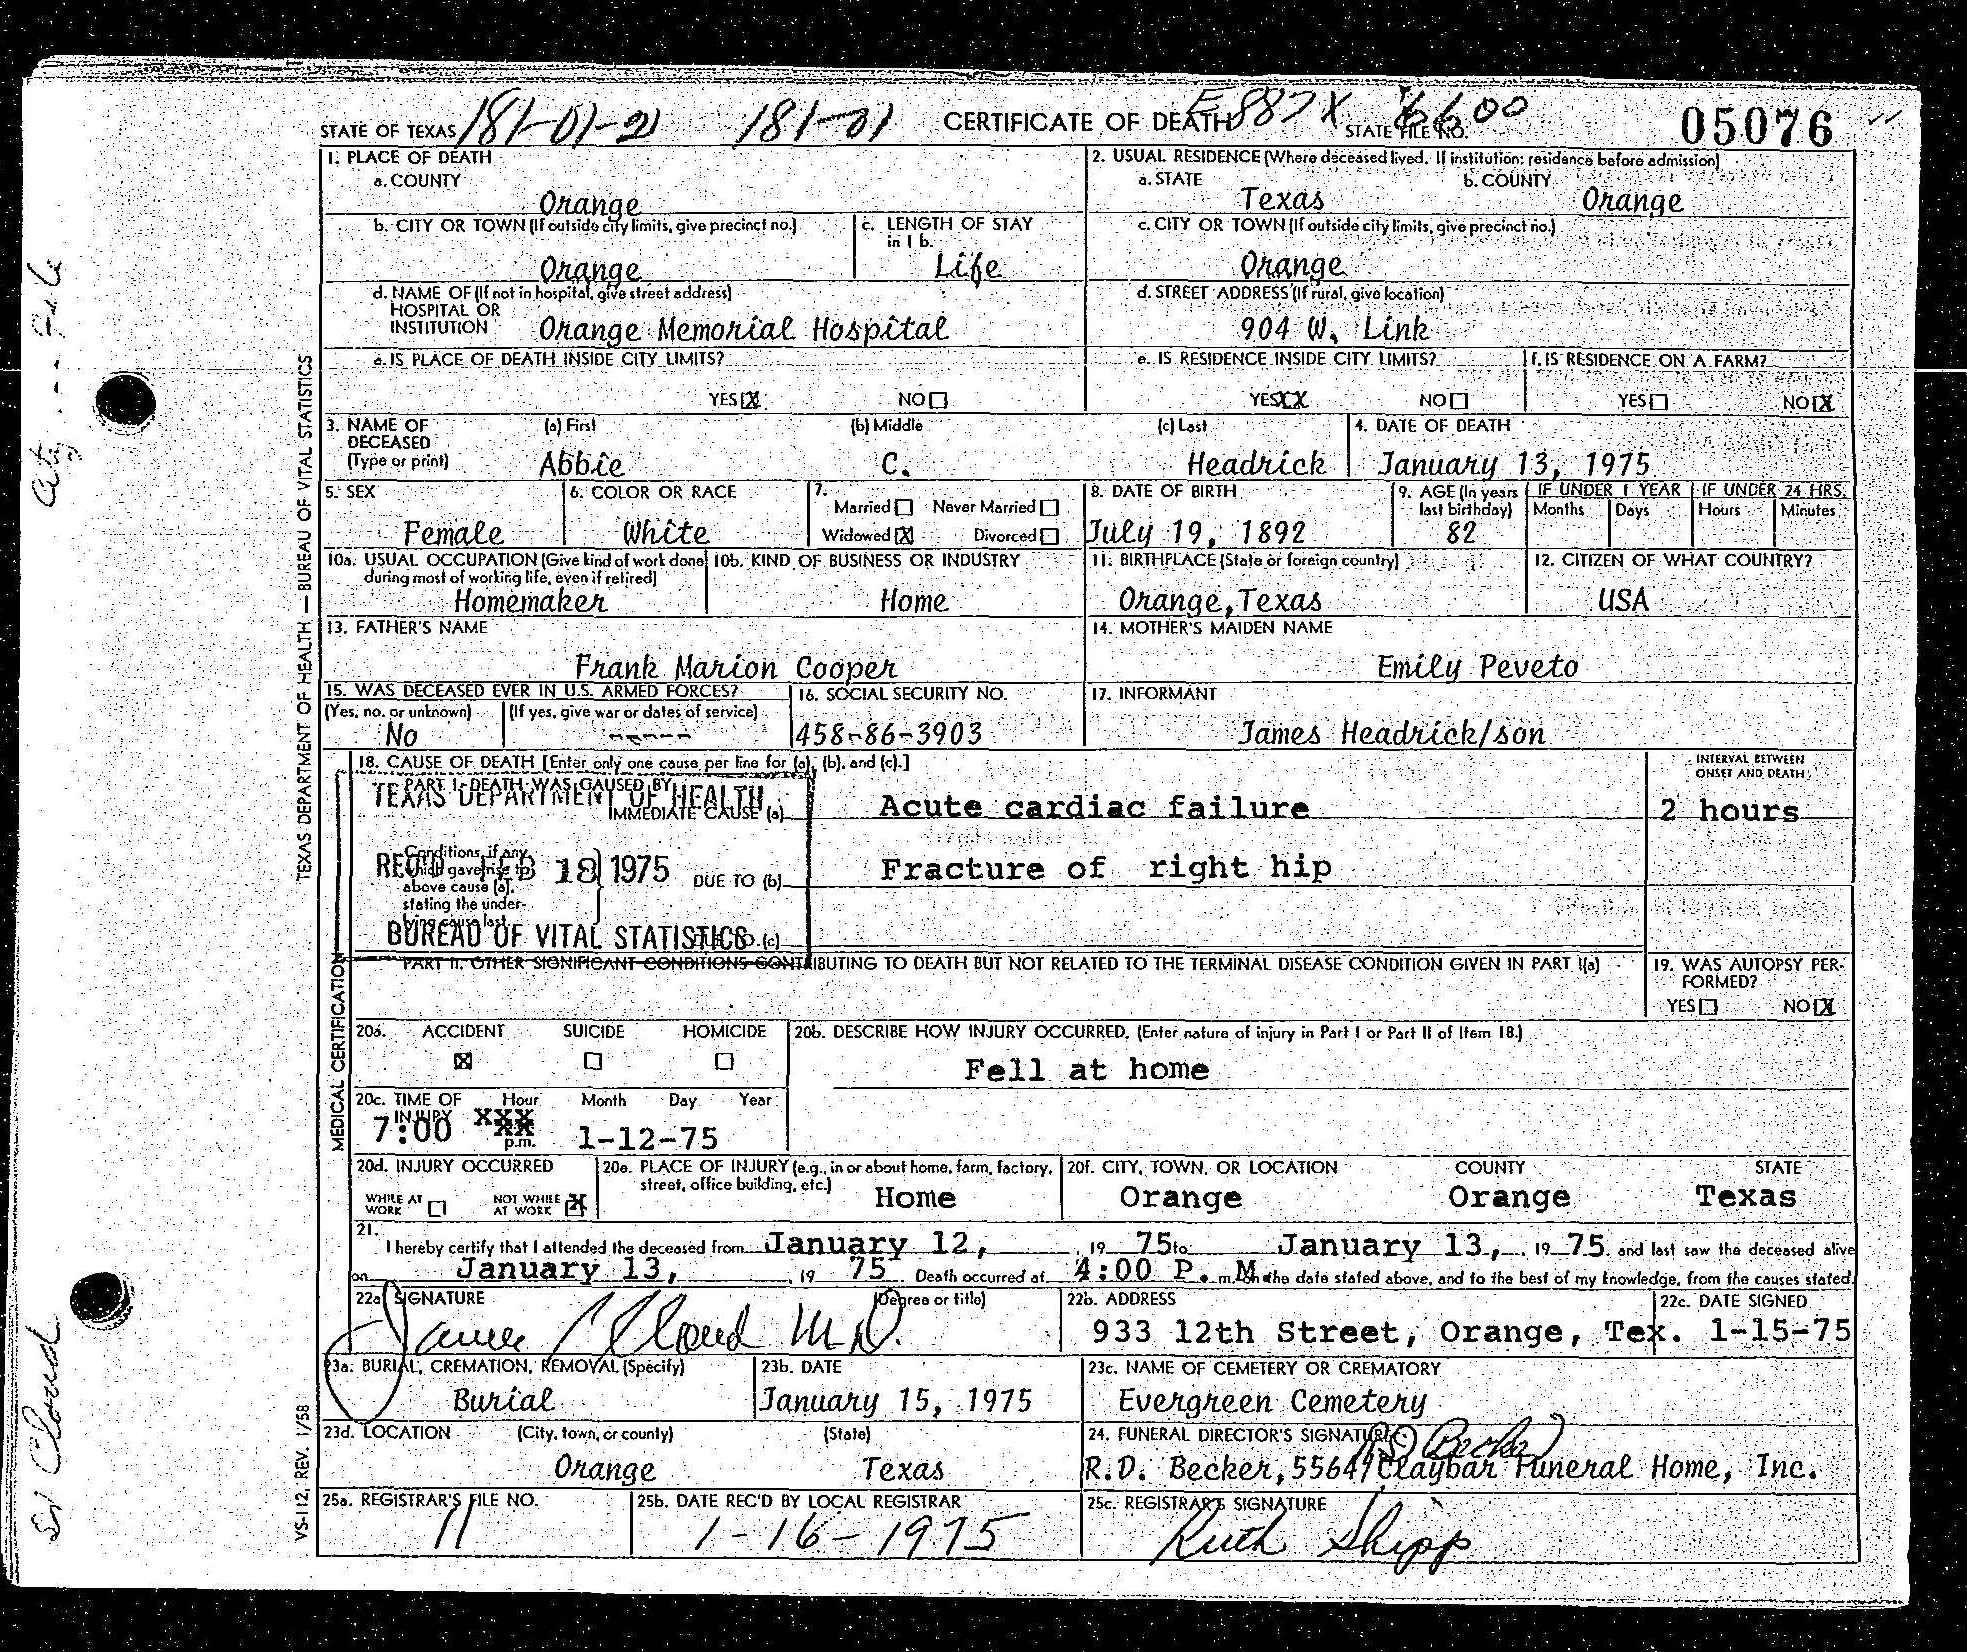 STATE OF TEXAS 181-01-21 181-01 CERTIFICATE OF DEATH E887X STATE FILE NO. 6600 05076
1. PLACE OF DEATH
a. COUNTY
Orange
2. USUAL RESIDENCE (Where deceased lived. If institution: residence before admission)
a. STATE b. COUNTY
Texas Orange
b. CITY OR TOWN (If outside city limits, give precinct no.)
Orange
c. LENGTH OF STAY
in 1 b.
Life
c. CITY OR TOWN (If outside city limits, give precinct no.)
Orange
d. NAME OF (If not in hospital, give street address)
HOSPITAL OR
INSTITUTION Orange Memorial Hospital
d. STREET ADDRESS (If rural, give location)
904 W. Link
e. IS PLACE OF DEATH INSIDE CITY LIMITS?
YES X NO
e. IS RESIDENCE INSIDE CITY LIMITS?
YES XX NO
f. IS RESIDENCE ON A FARM?
YES NO X
3. NAME OF (a) First (b) Middle (c) Last
DECEASED
(Type or print) Abbie C. Headrick
4. DATE OF DEATH
January 13, 1975
5. SEX
Female
6. COLOR OR RACE
White
7.
Married Never Married
Widowed X Divorced
8. DATE OF BIRTH
July 19, 1892
9. AGE (In years
last birthday)
82
IF UNDER 1 YEAR IF UNDER 24 HRS.
Months Days Hours Minutes
10a. USUAL OCCUPATION (Give kind of work done
during most of working life, even if retired)
Homemaker
10b. KIND OF BUSINESS OR INDUSTRY
Home
11. BIRTHPLACE (State or foreign country)
Orange, Texas
12. CITIZEN OF WHAT COUNTRY?
USA
13. FATHER'S NAME
Frank Marion Cooper
14. MOTHER'S MAIDEN NAME
Emily Peveto
15. WAS DECEASED EVER IN U.S. ARMED FORCES?
(Yes, no, or unknown) (If yes, give war or dates of service)
No -----
16. SOCIAL SECURITY NO.
458-86-3903
17. INFORMANT
James Headrick/son
18. CAUSE OF DEATH [Enter only one cause per line for (a), (b), and (c).]
INTERVAL BETWEEN
ONSET AND DEATH
PART I. DEATH WAS CAUSED BY
TEXAS DEPARTMENT OF HEALTH
IMMEDIATE CAUSE (a) Acute cardiac failure 2 hours
Conditions, if any,
which gave rise to
above cause (a),
stating the under-
lying cause last.
REC'D FEB 18 1975
DUE TO (b) Fracture of right hip
BUREAU OF VITAL STATISTICS
DUE TO (c)
PART II. OTHER SIGNIFICANT CONDITIONS CONTRIBUTING TO DEATH BUT NOT RELATED TO THE TERMINAL DISEASE CONDITION GIVEN IN PART I(a)
19. WAS AUTOPSY PER-
FORMED?
YES NO X
20a. ACCIDENT SUICIDE HOMICIDE
X
20b. DESCRIBE HOW INJURY OCCURRED. (Enter nature of injury in Part I or Part II of Item 18.)
Fell at home
20c. TIME OF Hour Month Day Year
INJURY
7:00 XXX p.m. 1-12-75
20d. INJURY OCCURRED
WHILE AT
WORK
NOT WHILE
AT WORK X
20e. PLACE OF INJURY (e.g., in or about home, farm, factory,
street, office building, etc.) Home
20f. CITY, TOWN, OR LOCATION COUNTY STATE
Orange Orange Texas
21.
I hereby certify that I attended the deceased from January 12, 19 75 to January 13, 19 75 and last saw the deceased alive
on January 13, 19 75 Death occurred at 4:00 P. m. M on the date stated above, and to the best of my knowledge, from the causes stated.
22a. SIGNATURE (Degree or title)
James Cloud M.D.
22b. ADDRESS
933 12th Street, Orange, Tex.
22c. DATE SIGNED
1-15-75
23a. BURIAL, CREMATION, REMOVAL (Specify)
Burial
23b. DATE
January 15, 1975
23c. NAME OF CEMETERY OR CREMATORY
Evergreen Cemetery
23d. LOCATION (City, town, or county) (State)
Orange Texas
24. FUNERAL DIRECTOR'S SIGNATURE
RD Becker
R.D. Becker, 5564/Claybar Funeral Home, Inc.
25a. REGISTRAR'S FILE NO.
11
25b. DATE REC'D BY LOCAL REGISTRAR
1-16-1975
25c. REGISTRAR'S SIGNATURE
Ruth Shipp
TEXAS DEPARTMENT OF HEALTH — BUREAU OF VITAL STATISTICS
MEDICAL CERTIFICATION
VS-112, REV. 1/58
Dr Cloud